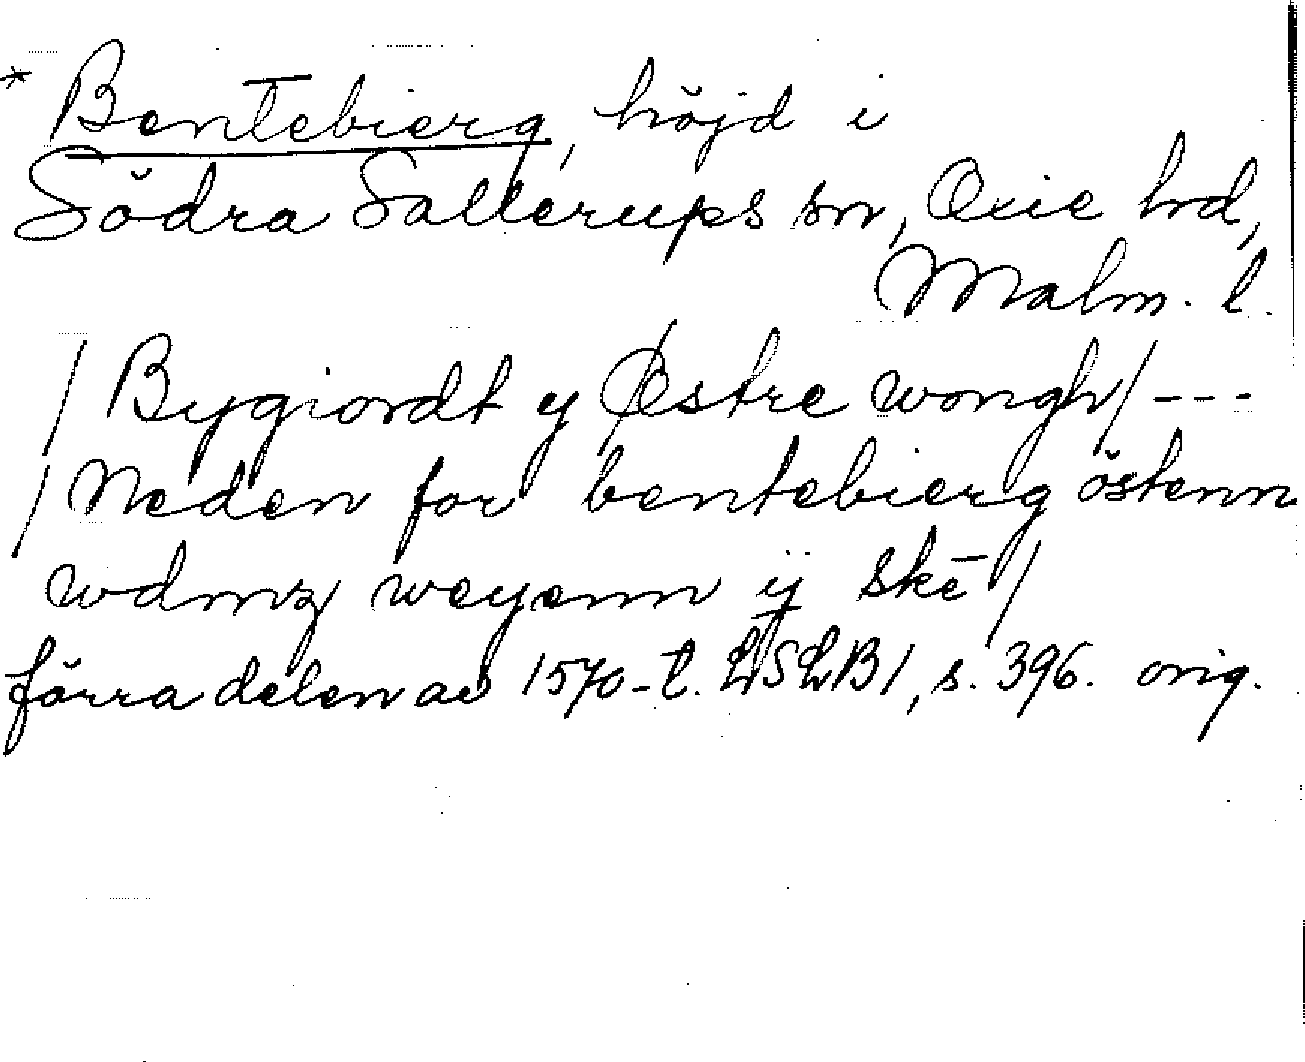 * Bentebierg, höjd i
Södra Sallerups sn, Oxie hd,
Malm. l.
/ Bygiordt y Østre wongh / ---
/ Neden for bentebierg östenn
wdmz weyenn ÿ skē /
förra delen av 1570-t. LSLB1, s. 396. orig.